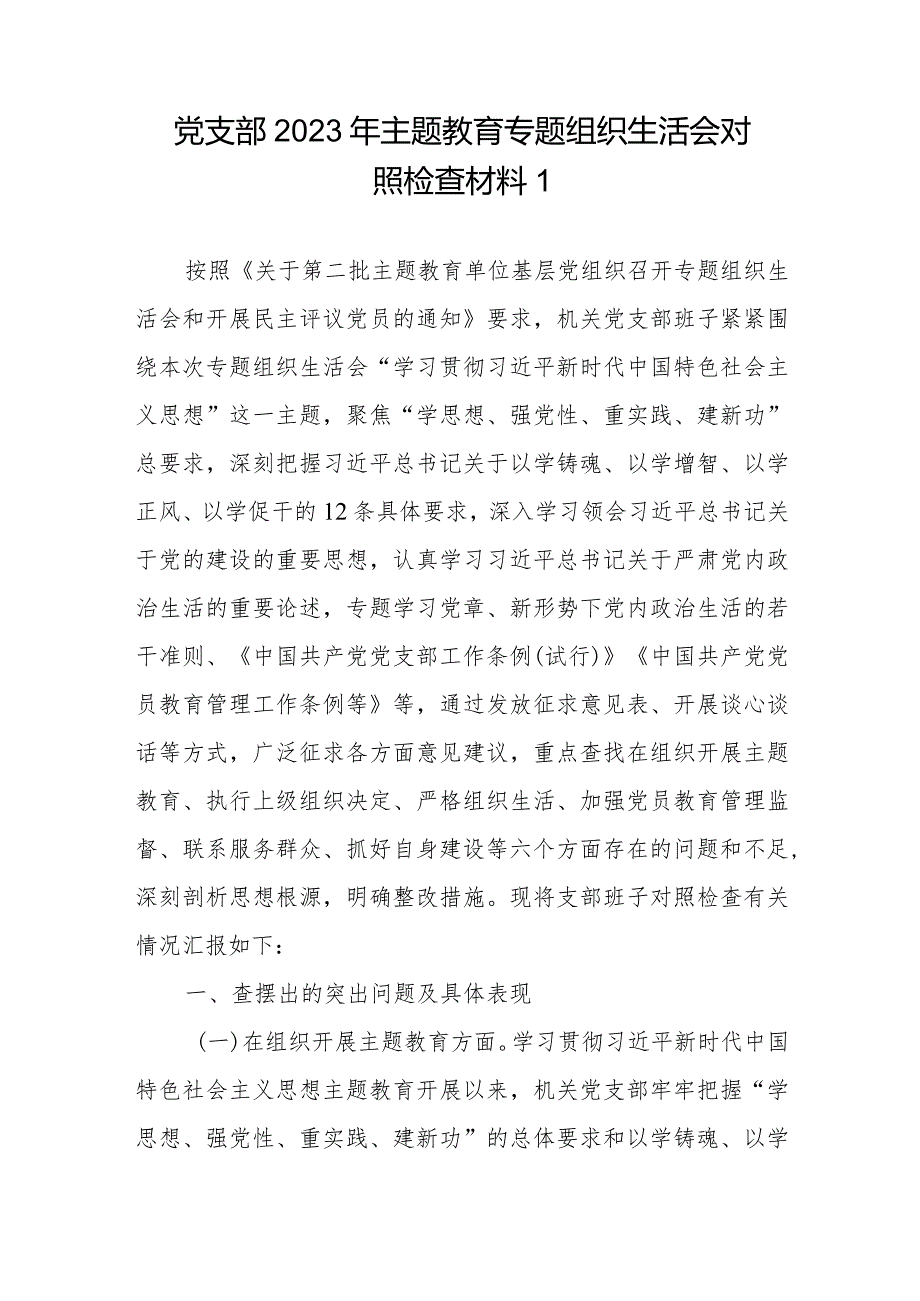 党支部 2023 年主题教育专题组织生活会对
照检查材料 1
按照《关于第二批主题教育单位基层党组织召开专题组织生
活会和开展民主评议党员的通知》要求，机关党支部班子紧紧围
绕本次专题组织生活会“学习贯彻习近平新时代中国特色社会主
义思想”这一主题，聚焦“学思想、强党性、重实践、建新功”
总要求，深刻把握习近平总书记关于以学铸魂、以学增智、以学
正风、以学促干的 12 条具体要求，深入学习领会习近平总书记关
于党的建设的重要思想，认真学习习近平总书记关于严肃党内政
治生活的重要论述，专题学习党章、新形势下党内政治生活的若
干准则、《中国共产党党支部工作条例(试行)》《中国共产党党
员教育管理工作条例等》等，通过发放征求意见表、开展谈心谈
话等方式，广泛征求各方面意见建议，重点查找在组织开展主题
教育、执行上级组织决定、严格组织生活、加强党员教育管理监
督、联系服务群众、抓好自身建设等六个方面存在的问题和不足，
深刻剖析思想根源，明确整改措施。现将支部班子对照检查有关
情况汇报如下：
一、查摆出的突出问题及具体表现
(一)在组织开展主题教育方面。学习贯彻习近平新时代中国
特色社会主义思想主题教育开展以来，机关党支部牢牢把握“学
思想、强党性、重实践、建新功”的总体要求和以学铸魂、以学